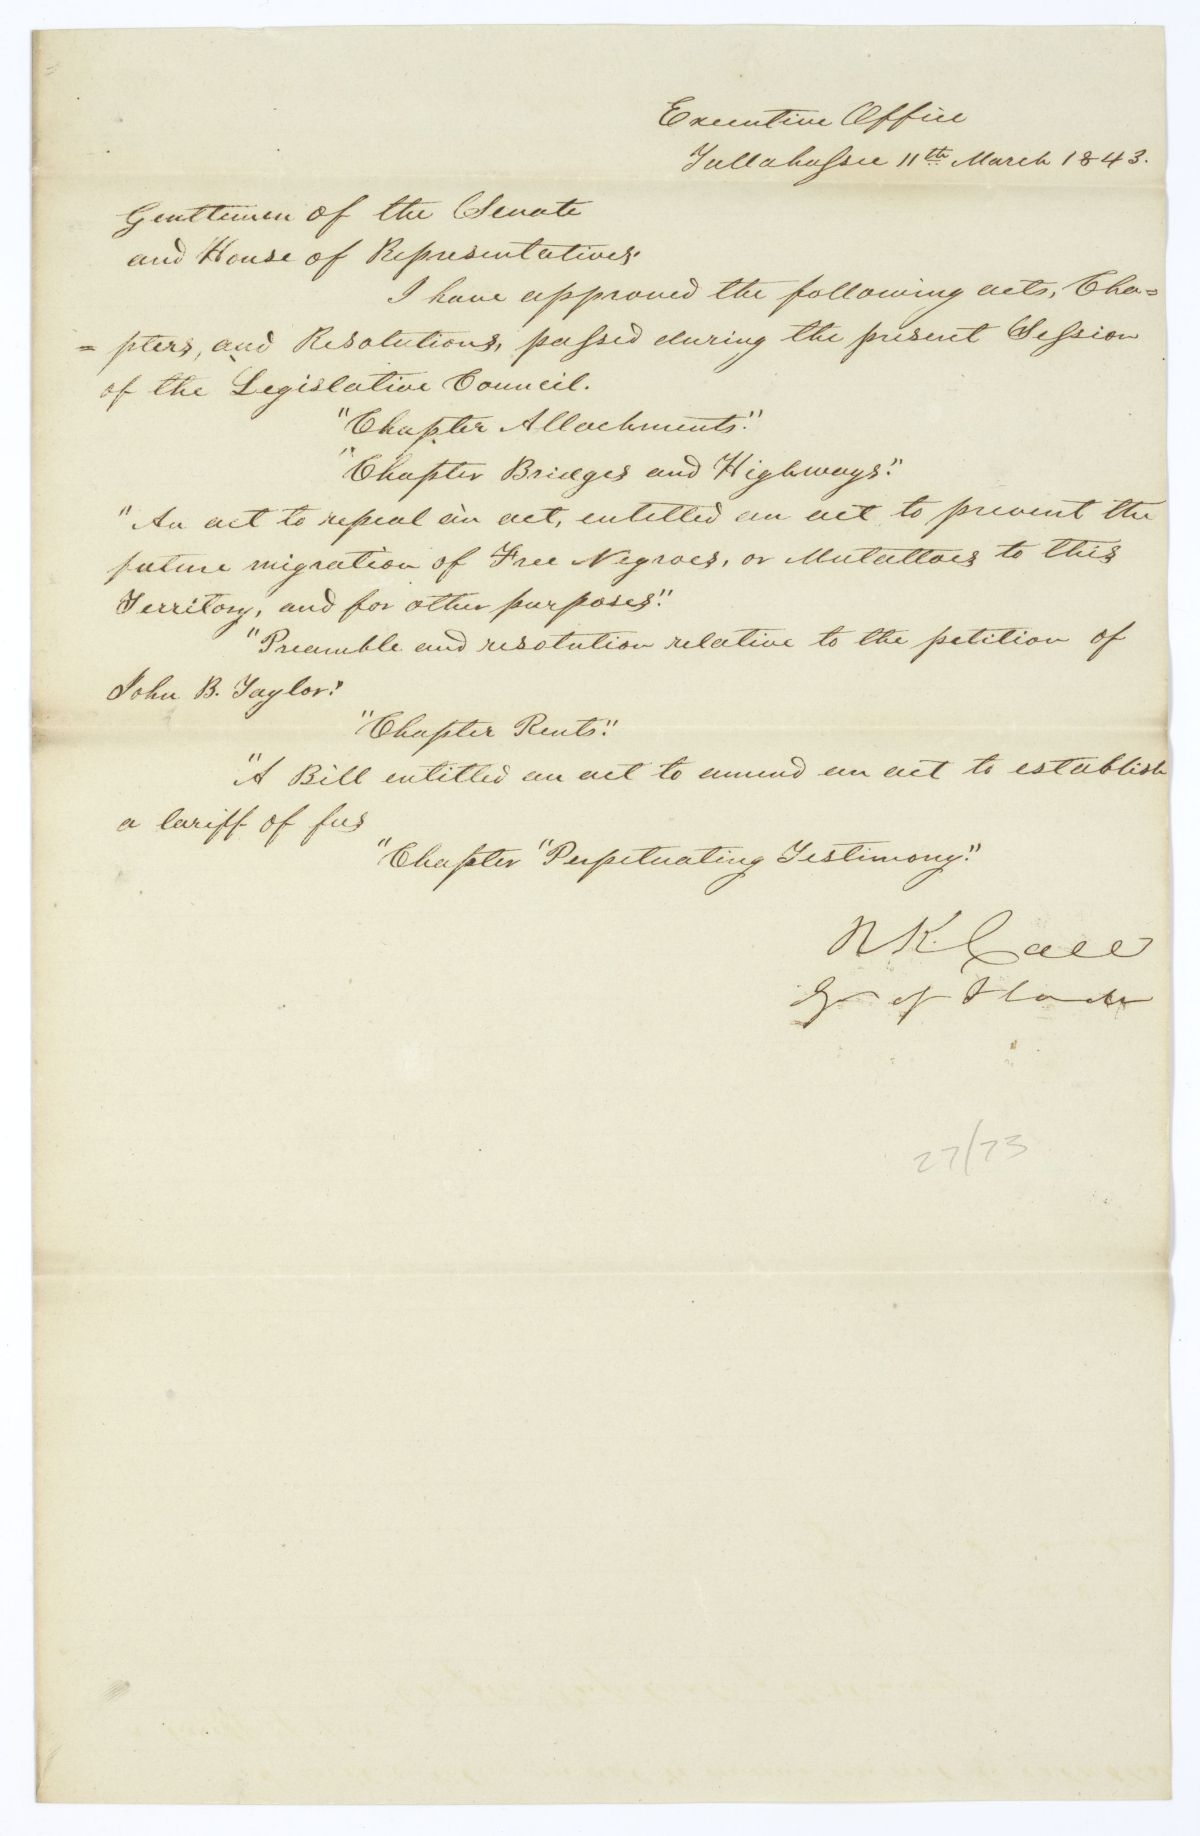 Executive Office
Tallahassee 11th March 1843.
Gentlemen of the Senate
and House of Representatives.
I have approved the following acts, Cha=
= pters, and Resolutions, passed during the present Session
of the Legislative Council.
"Chapter Attachments."
"Chapter Bridges and Highways."
"An act to repeal an act, entitled an act to prevent the
future migration of Free Negroes, or Mulattoes to this
Territory, and for other purposes."
"Preamble and resolution relative to the petition of
John B. Taylor."
"Chapter Rents."
"A Bill entitled an act to amend an act to establish
a tariff of fees
"Chapter "Perpetuating Testimony."
R K. Call
Gov of Florida
27/73